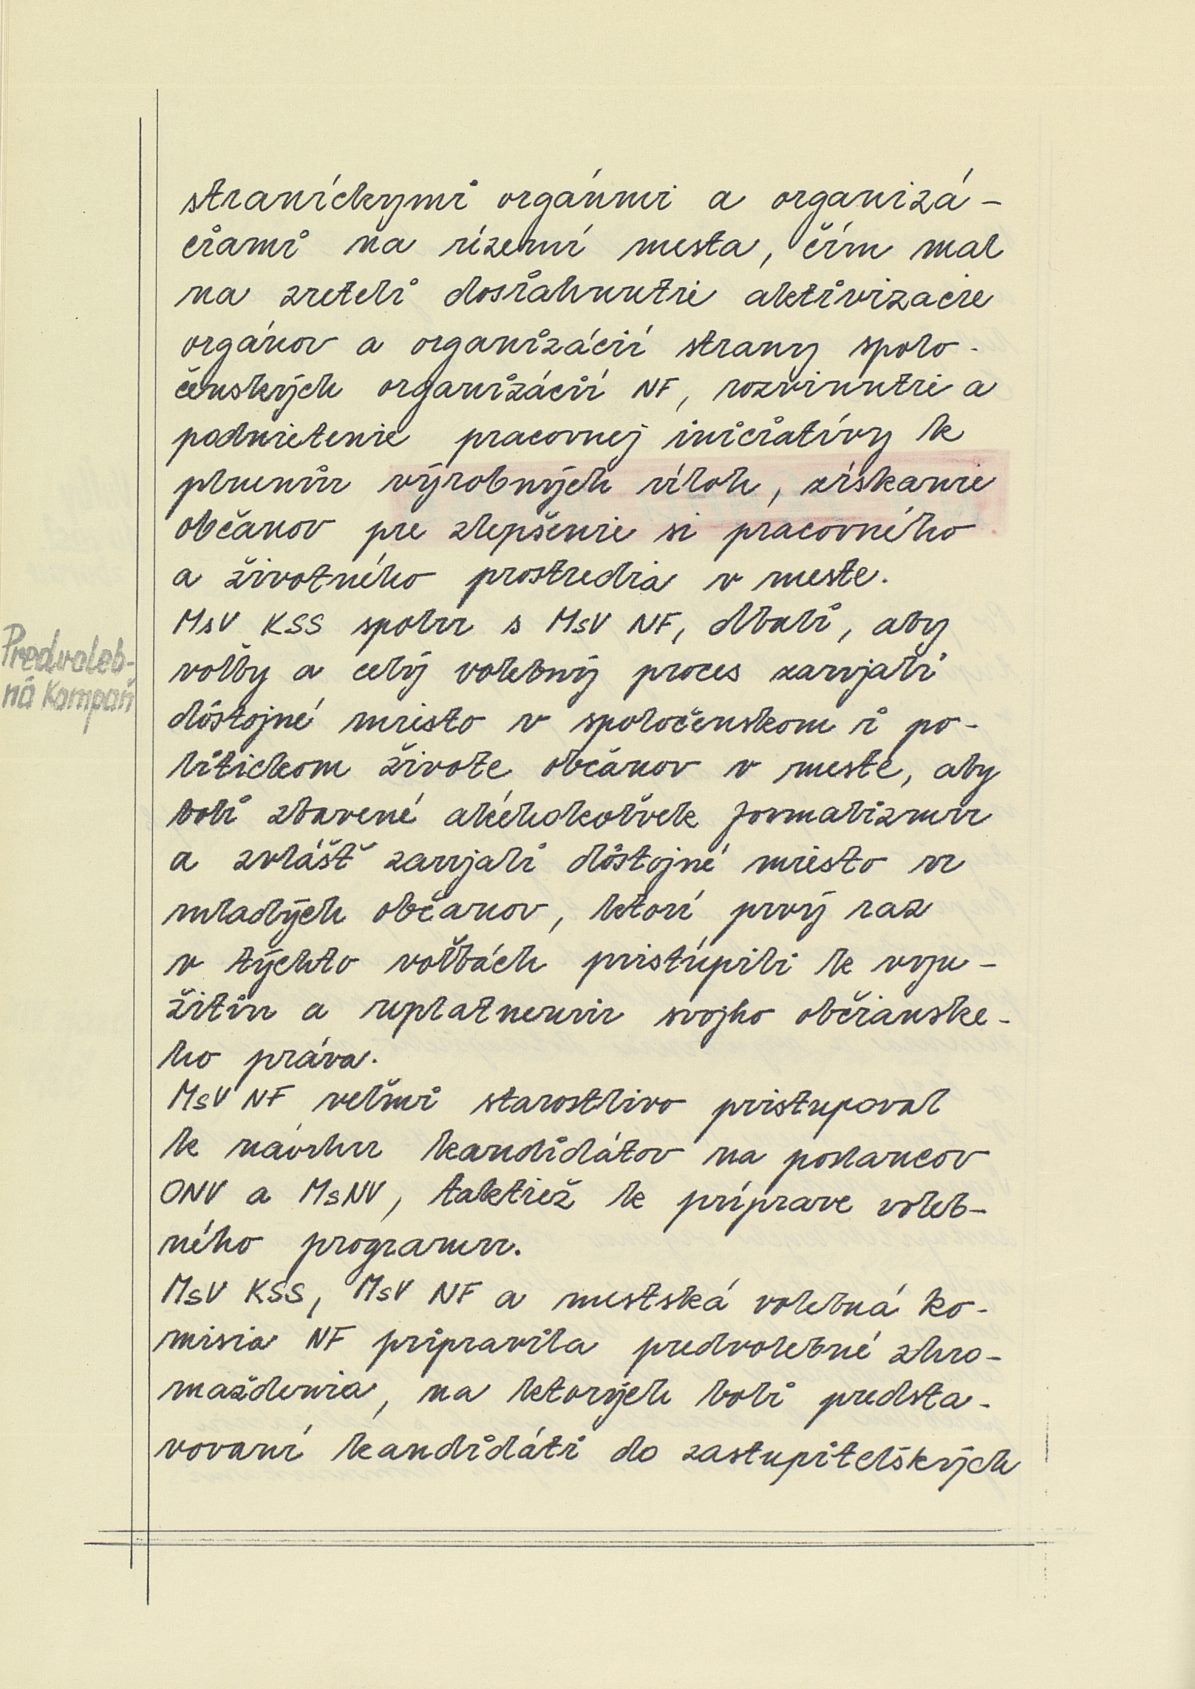 straníckymi orgánmi a organizá-
ciami na území mesta, čím mal
na zreteli dosiahnutie aktivizacie
orgánov a organizácií strany spolo-
čenských organizácií NF, rozvinutie a
podnietenie pracovnej iniciatívy k
plneniu výrobných úloh, získanie
občanov pre zlepšenie si pracovného
a životného prostredia v meste.
MsV KSS spolu s MsV NF, dbali, aby
Predvoleb-
ná kampaň
voľby a celý volebný proces zaujali
dôstojné miesto v spoločenskom i po-
litickom živote občanov v meste, aby
boli zbavené akéhokoľvek formalizmu
a zvlášť zaujali dôstojné miesto u
mladých občanov, ktorí prvý raz
v týchto voľbách pristúpili k vyu-
žitiu a uplatneniu svojho občianske-
ho práva.
MsV NF veľmi starostlivo pristupoval
k návrhu kandidátov na poslancov
ONV a MsNV, taktiež k príprave voleb-
ného programu.
MsV KSS, MsV NF a mestská volebná ko-
misia NF pripravila predvolebné zhro-
maždenia, na ktorých boli predsta-
vovaní kandidáti do zastupiteľských